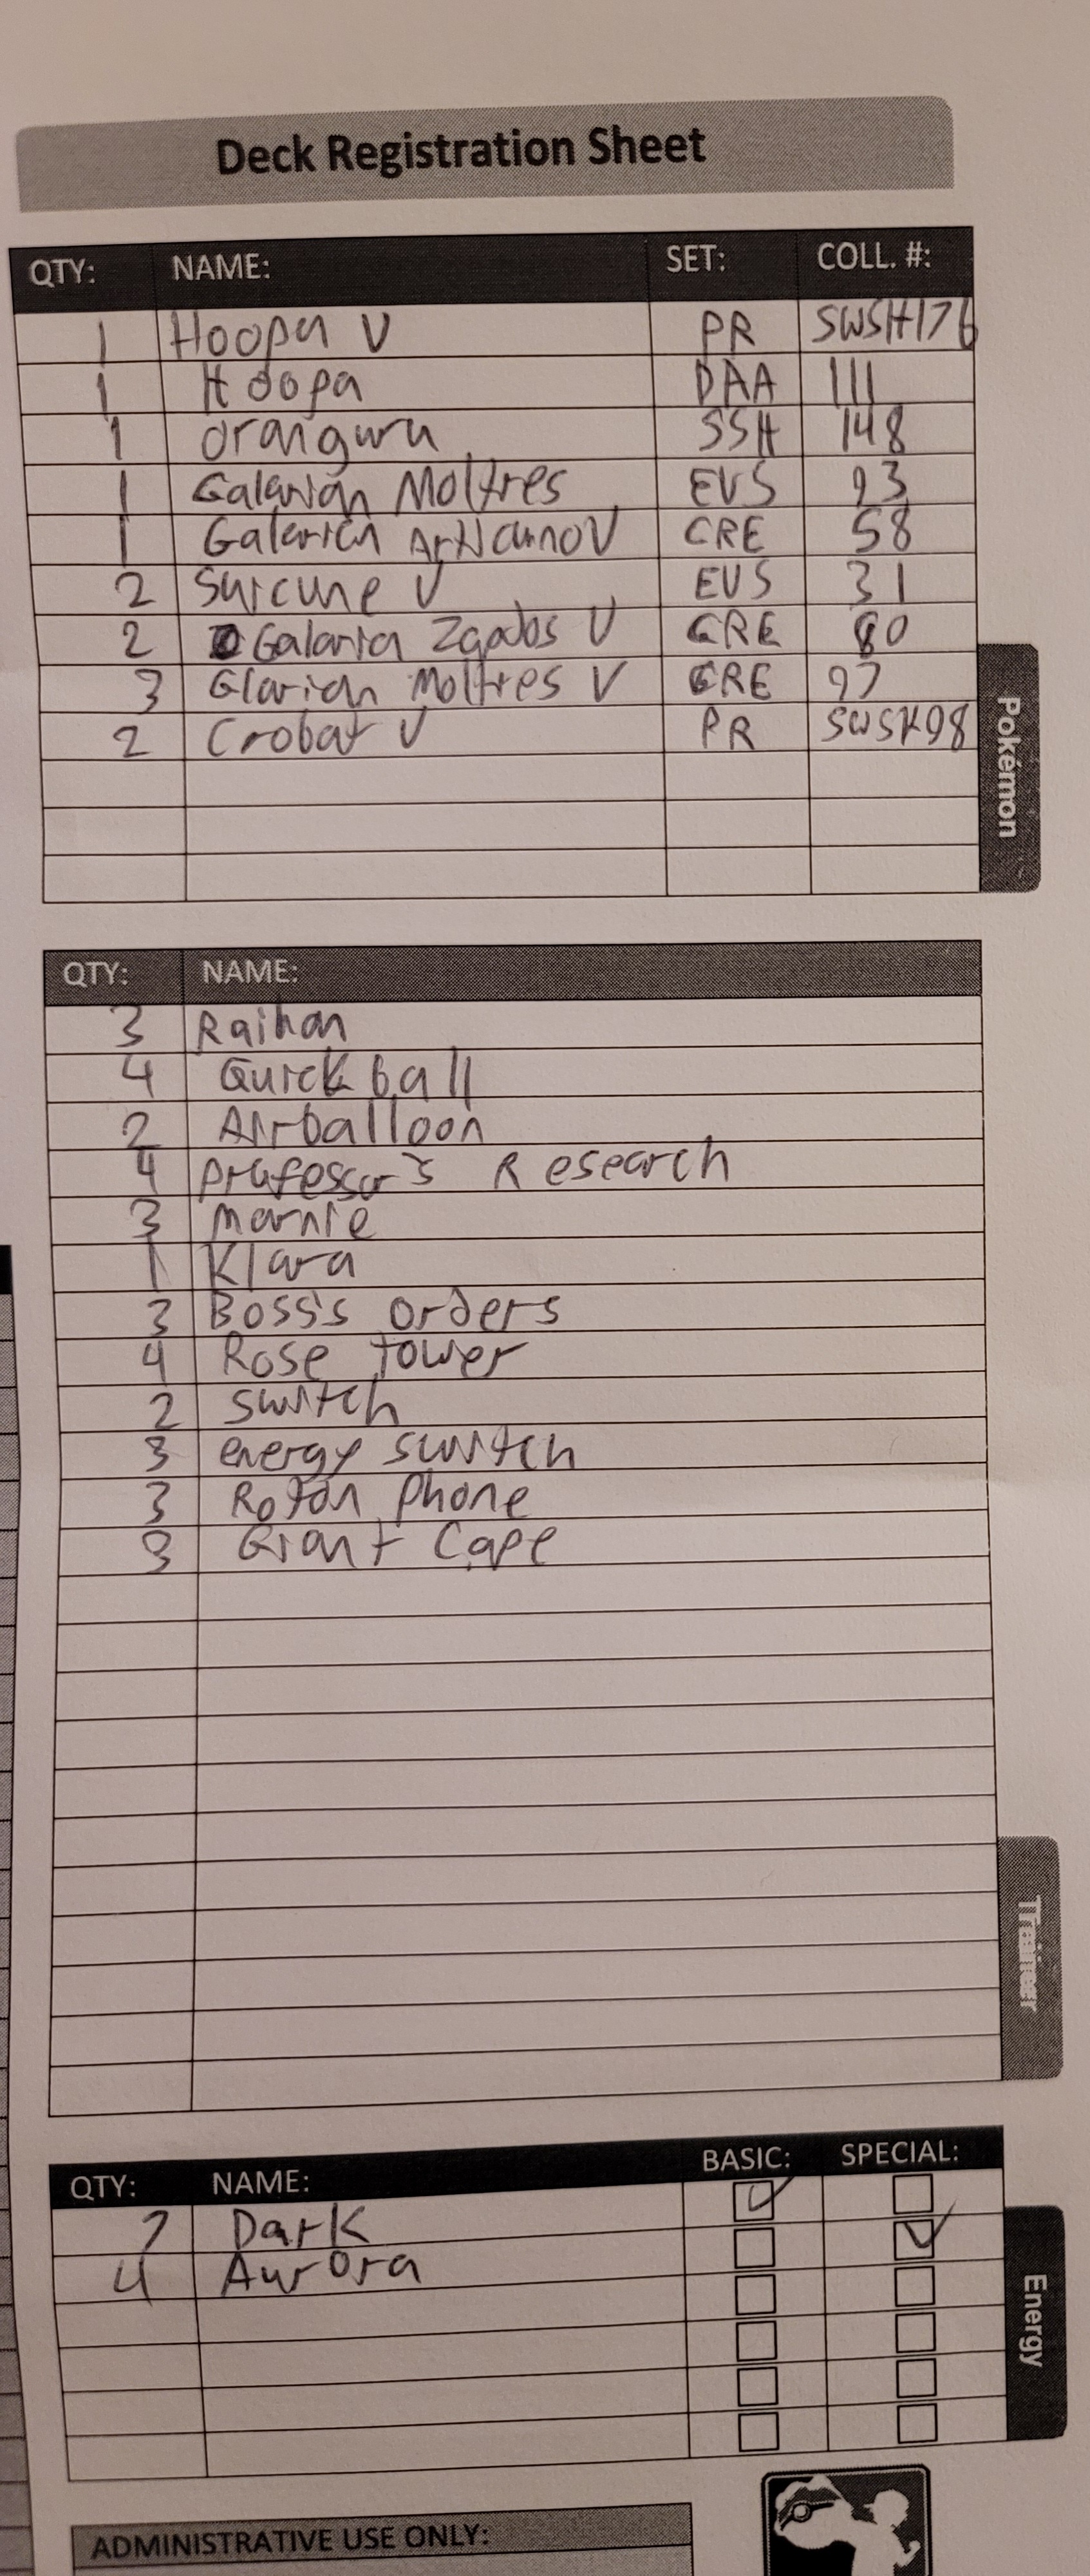 Deck Registration Sheet
QTY: NAME: SET: COLL. #:
1 Hoopa V PR SWSH176
1 Hoopa DAA 111
1 oranguru SSH 148
1 Galarian Moltres EVS 93
1 Galarian Articuno V CRE 58
2 Suicune V EVS 31
2 Galaria Zapdos V CRE 80
3 Glarian Moltres V CRE 97
2 Crobat V PR SWSH98
Pokémon
QTY: NAME:
3 Raihan
4 Quick ball
2 Airballoon
4 professor's Research
3 marnie
1 Klara
3 Boss's orders
4 Rose tower
2 switch
3 energy switch
3 Rotom Phone
3 Giant Cape
Trainer
QTY: NAME: BASIC: SPECIAL:
7 Dark
4 Aurora
Energy
ADMINISTRATIVE USE ONLY: